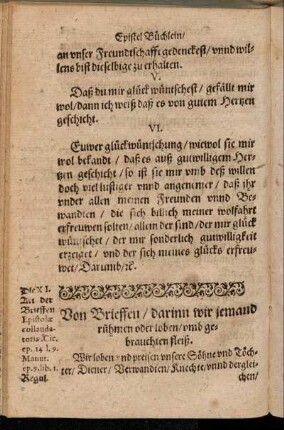 Epistel Büchlein/
an vnser Freundtschafft gedenckest/ vnnd wil-
lens bist dieselbige zu erhalten.
V.
Daß du mir glück wüntschest/ gefällt mir
wol/ dann ich weiß daß es von gutem Hertzen
geschicht.
VI.
Euwer glückwüntschung/ wiewol sie mir
wol bekandt/ daß es auß gutwilligem Her-
tzen geschicht/ so ist sie mir vmb deß willen
doch viel lustiger vnnd angenemer/ daß jhr
vnder allen meinen Freunden vnnd Be-
wandten/ die sich billich meiner wolfahrt
erfreuwen solten/ allein der sind/ der mir glück
wünschet/ der mir sonderlich gutwilligkeit
erzeiget/ vnd der sich meines glücks erfreu-
wet/ Darumb/ ꝛc.
Die XI.
Art der
Brieffen
Epistolæ
collauda-
toriæ Cic.
ep. 14. l. 9.
Manut.
ep. 9. lib. 1.
Regul.
Von Brieffen/ darinn wir jemand
rühmen oder loben/ vnd ge-
brauchten fleiß.
Wir loben vnd preisen vnsere Söhne vnd Töch-
ter/ Diener/ Verwandten/ Knechte/ vnnd derglei-
chen/